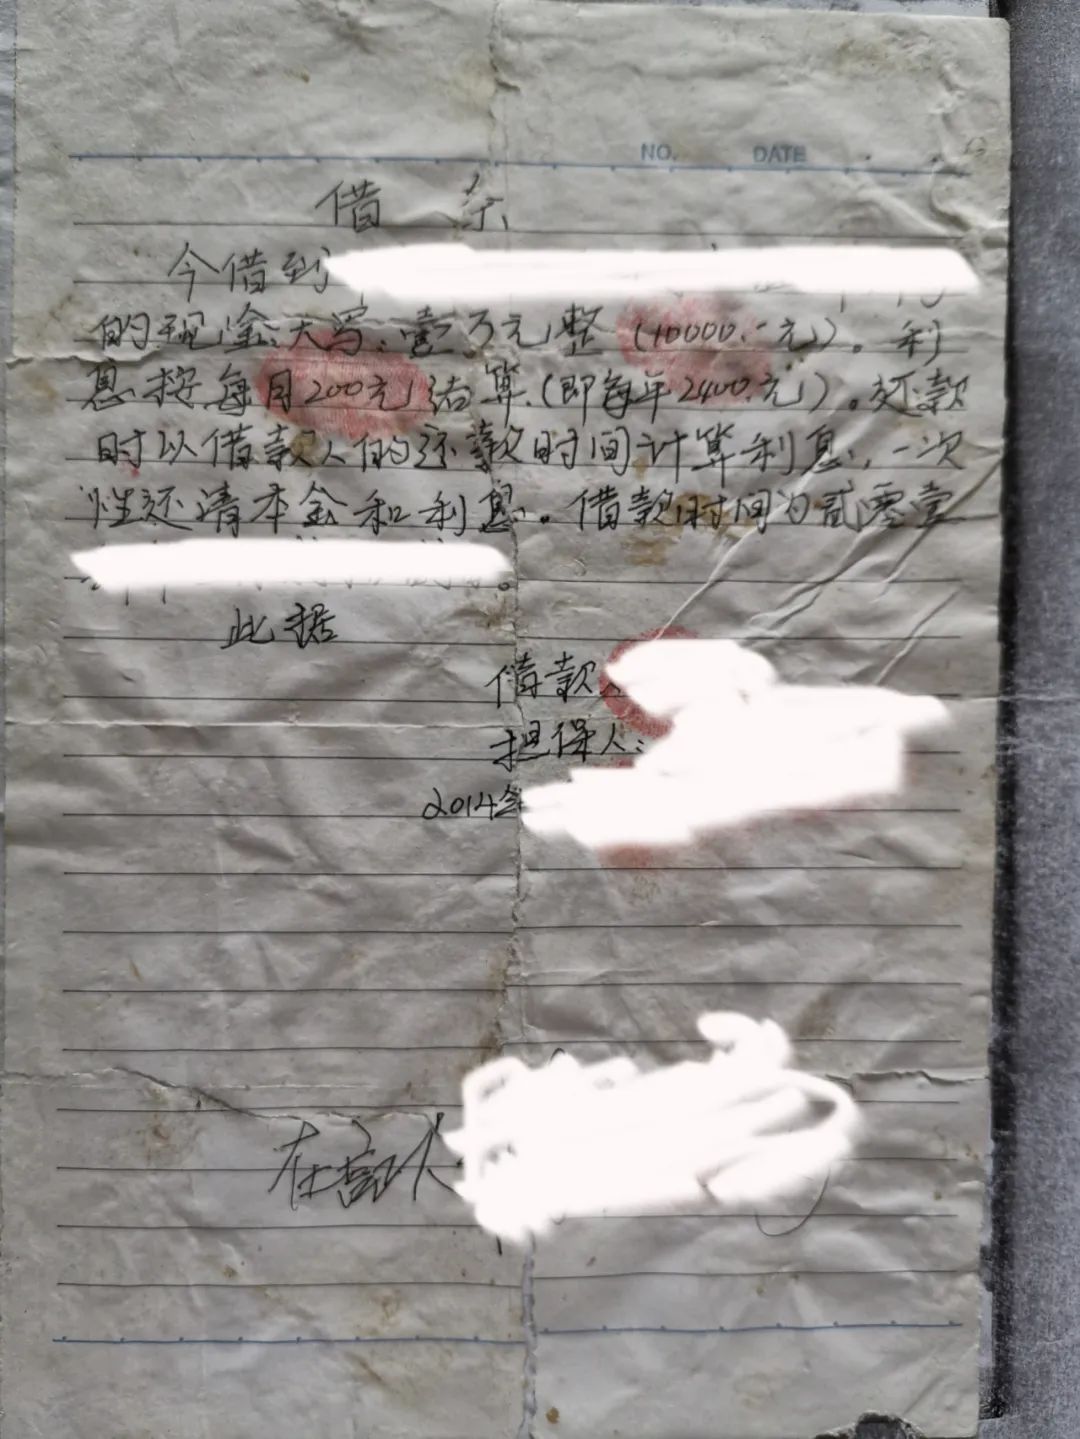 NO. DATE
借 条
今借到
的现金大写:壹万元整(10000.-元)。利
息按每月200元结算(即每年2400.元)。还款
时以借款人的还款时间计算利息,一次
性还清本金和利息。借款时间为贰零壹
此据
借款
担保人:
2014年
在场人